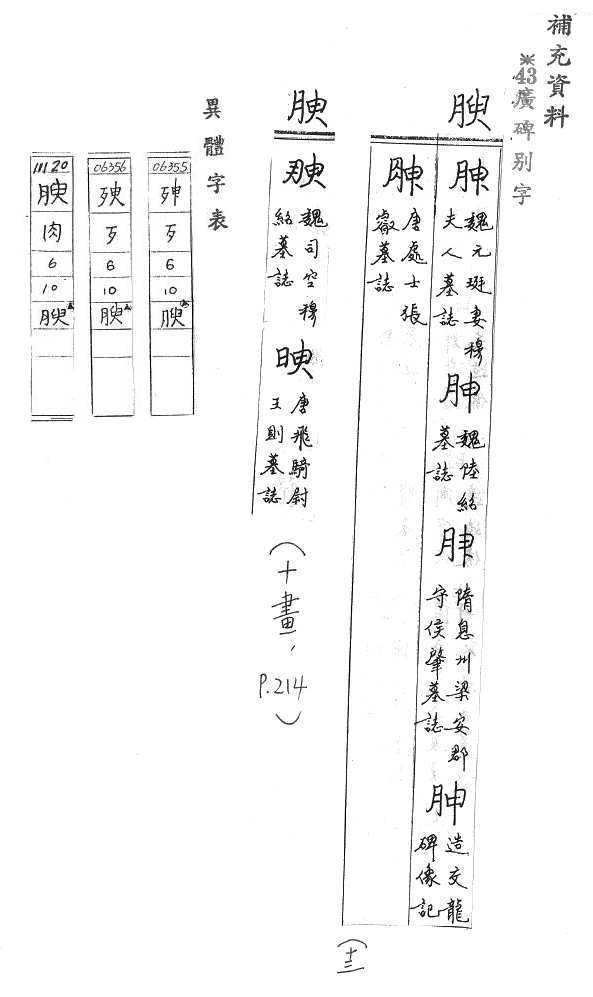 補充資料
※43廣碑別字
腴
𦛼 魏元珽妻穆夫人墓誌
魏陸紹墓誌
隋息州梁安郡守侯肇墓誌
胂 造交龍碑像記
唐處士張叡墓誌
腴
魏司空穆紹墓誌
唐飛騎尉王則墓誌
(十畫，P.214)
異體字表
06355
歹
6
10
腴
06356
歹
6
10
腴
11120
腴
肉
6
10
腴
(十三)